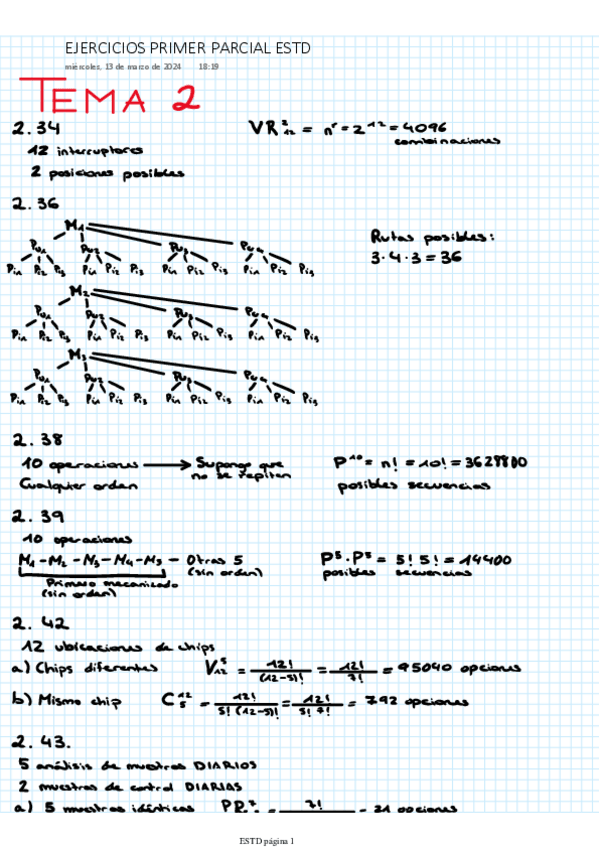 EJERCICIOS PRIMER PARCIAL ESTD
miércoles, 13 de marzo de 2024 18:19
TEMA 2
2.34
12 interruptores
2 posiciones posibles
VR²₁₂ = nʳ = 2¹² = 4096
combinaciones
2.36
M₁
Pu₁ Pu₂ Pu₃ Pu₄
Pi₁ Pi₂ Pi₃ Pi₁ Pi₂ Pi₃ Pi₁ Pi₂ Pi₃ Pi₁ Pi₂ Pi₃
Rutas posibles:
3·4·3 = 36
M₂
Pu₁ Pu₂ Pu₃ Pu₄
Pi₁ Pi₂ Pi₃ Pi₁ Pi₂ Pi₃ Pi₁ Pi₂ Pi₃ Pi₁ Pi₂ Pi₃
M₃
Pu₁ Pu₂ Pu₃ Pu₄
Pi₁ Pi₂ Pi₃ Pi₁ Pi₂ Pi₃ Pi₁ Pi₂ Pi₃ Pi₁ Pi₂ Pi₃
2.38
10 operaciones → Supongo que
no se repiten
Cualquier orden
P¹⁰ = n! = 10! = 3628800
posibles secuencias
2.39
10 operaciones
M₁ - M₂ - M₃ - M₄ - M₅ - Otras 5
(sin orden)
Primero mecanizado
(sin orden)
P⁵·P⁵ = 5! 5! = 14400
posibles secuencias
2.42
12 ubicaciones de chips
a) Chips diferentes V⁵₁₂ = 12!/(12-5)! = 12!/7! = 95040 opciones
b) Mismo chip C¹²₅ = 12!/5!(12-5)! = 12!/5! 7! = 792 opciones
2.43.
5 análisis de muestras DIARIOS
2 muestras de control DIARIAS
a) 5 muestras idénticas PR⁷ = 7! = 21 opciones
ESTD página 1